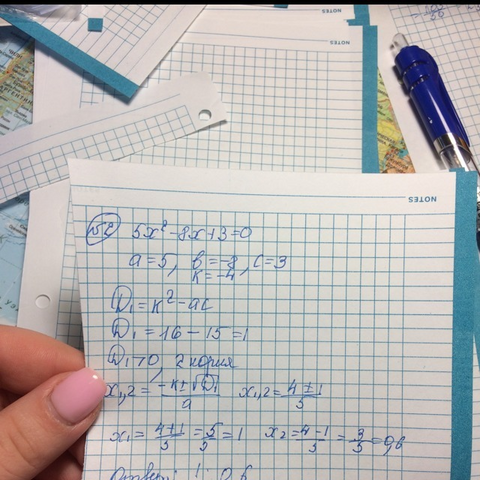 NOTES
NOTES
152 5x² - 8x + 3 = 0
a = 5, b = -8, c = 3
k = -4
D₁ = k² - ac
D₁ = 16 - 15 = 1
D₁ > 0, 2 корня
x₁,₂ = (-k ± √D₁)/a x₁,₂ = (4 ± 1)/5
x₁ = (4 + 1)/5 = 5/5 = 1 x₂ = (4 - 1)/5 = 3/5 = 0,6
Ответ: 1; 0,6